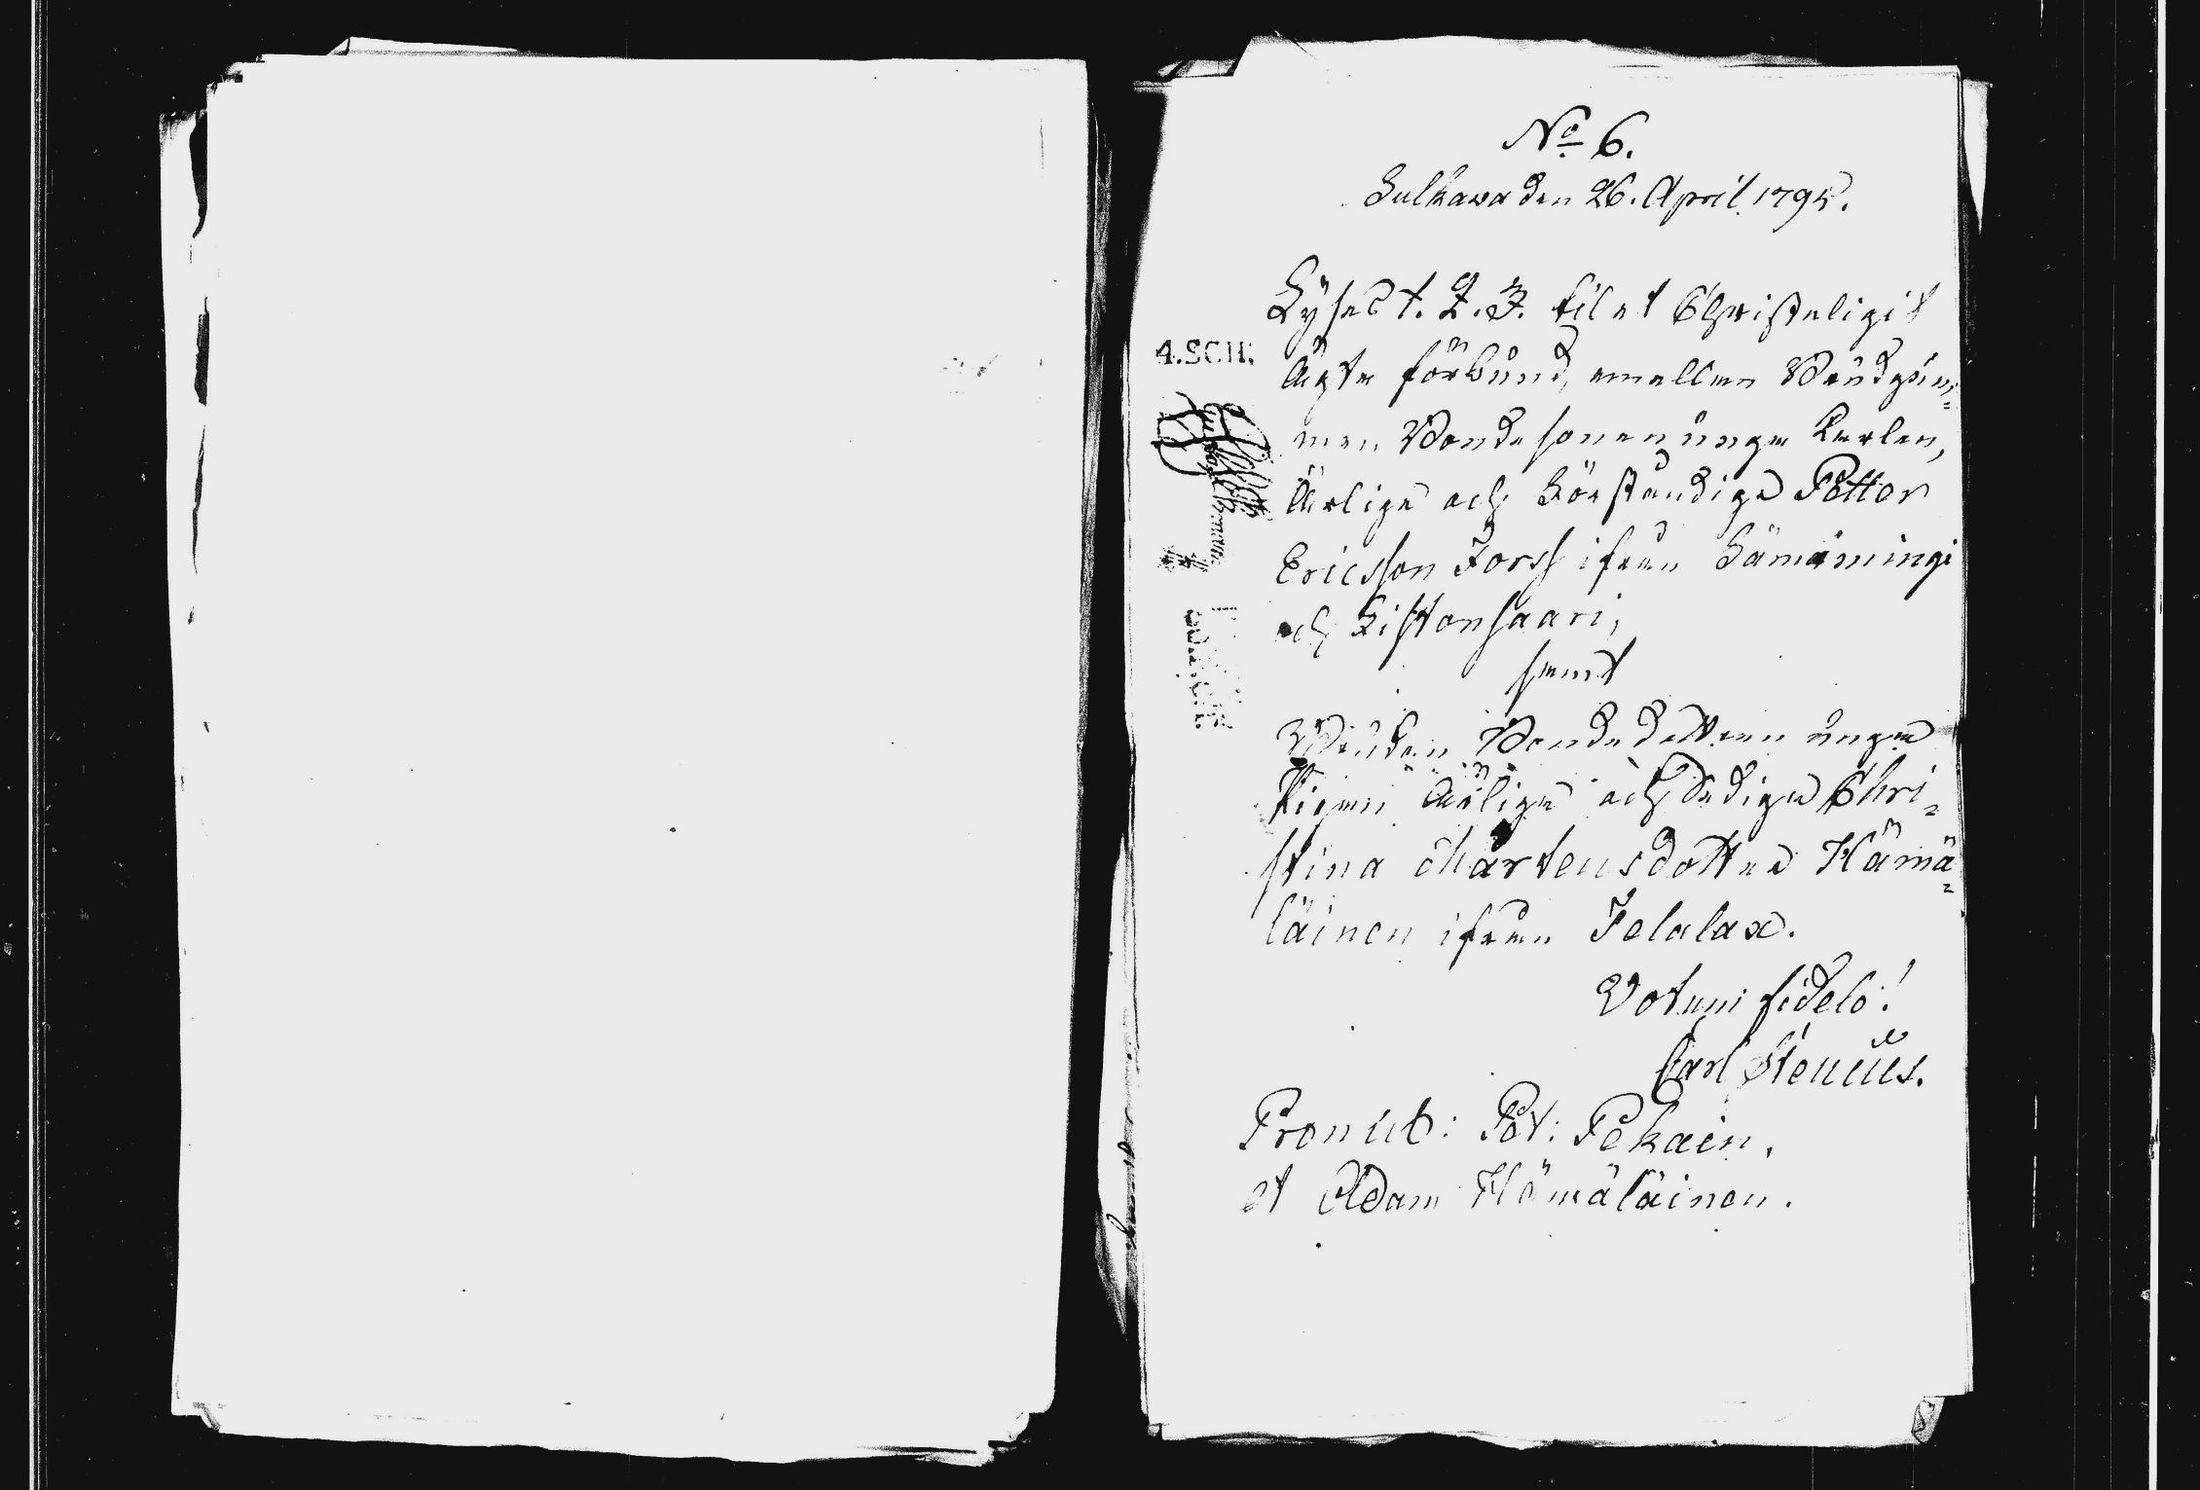 No 6.
Sulkava den 26. April 1795.
Lyses 1. 2. 3. til et Christeligit
4.SCH.
Ägta förbund, emellan Brudgum=
men Bondesonen unga Karlen,
Ärlige och Förståndige Petter
Ericsson Forss ifrån Sämäningi
och Kistonsaari,
samt
Bruden Bondedottren unga
Pigan Ärliga och Dediga Chri=
stina Mårtensdotter Hämä=
läinen ifrån Telalax.
Votum fidele!
Carl Stenius.
Pronub: Pet: Pekain,
et Adam Hämäläinen.